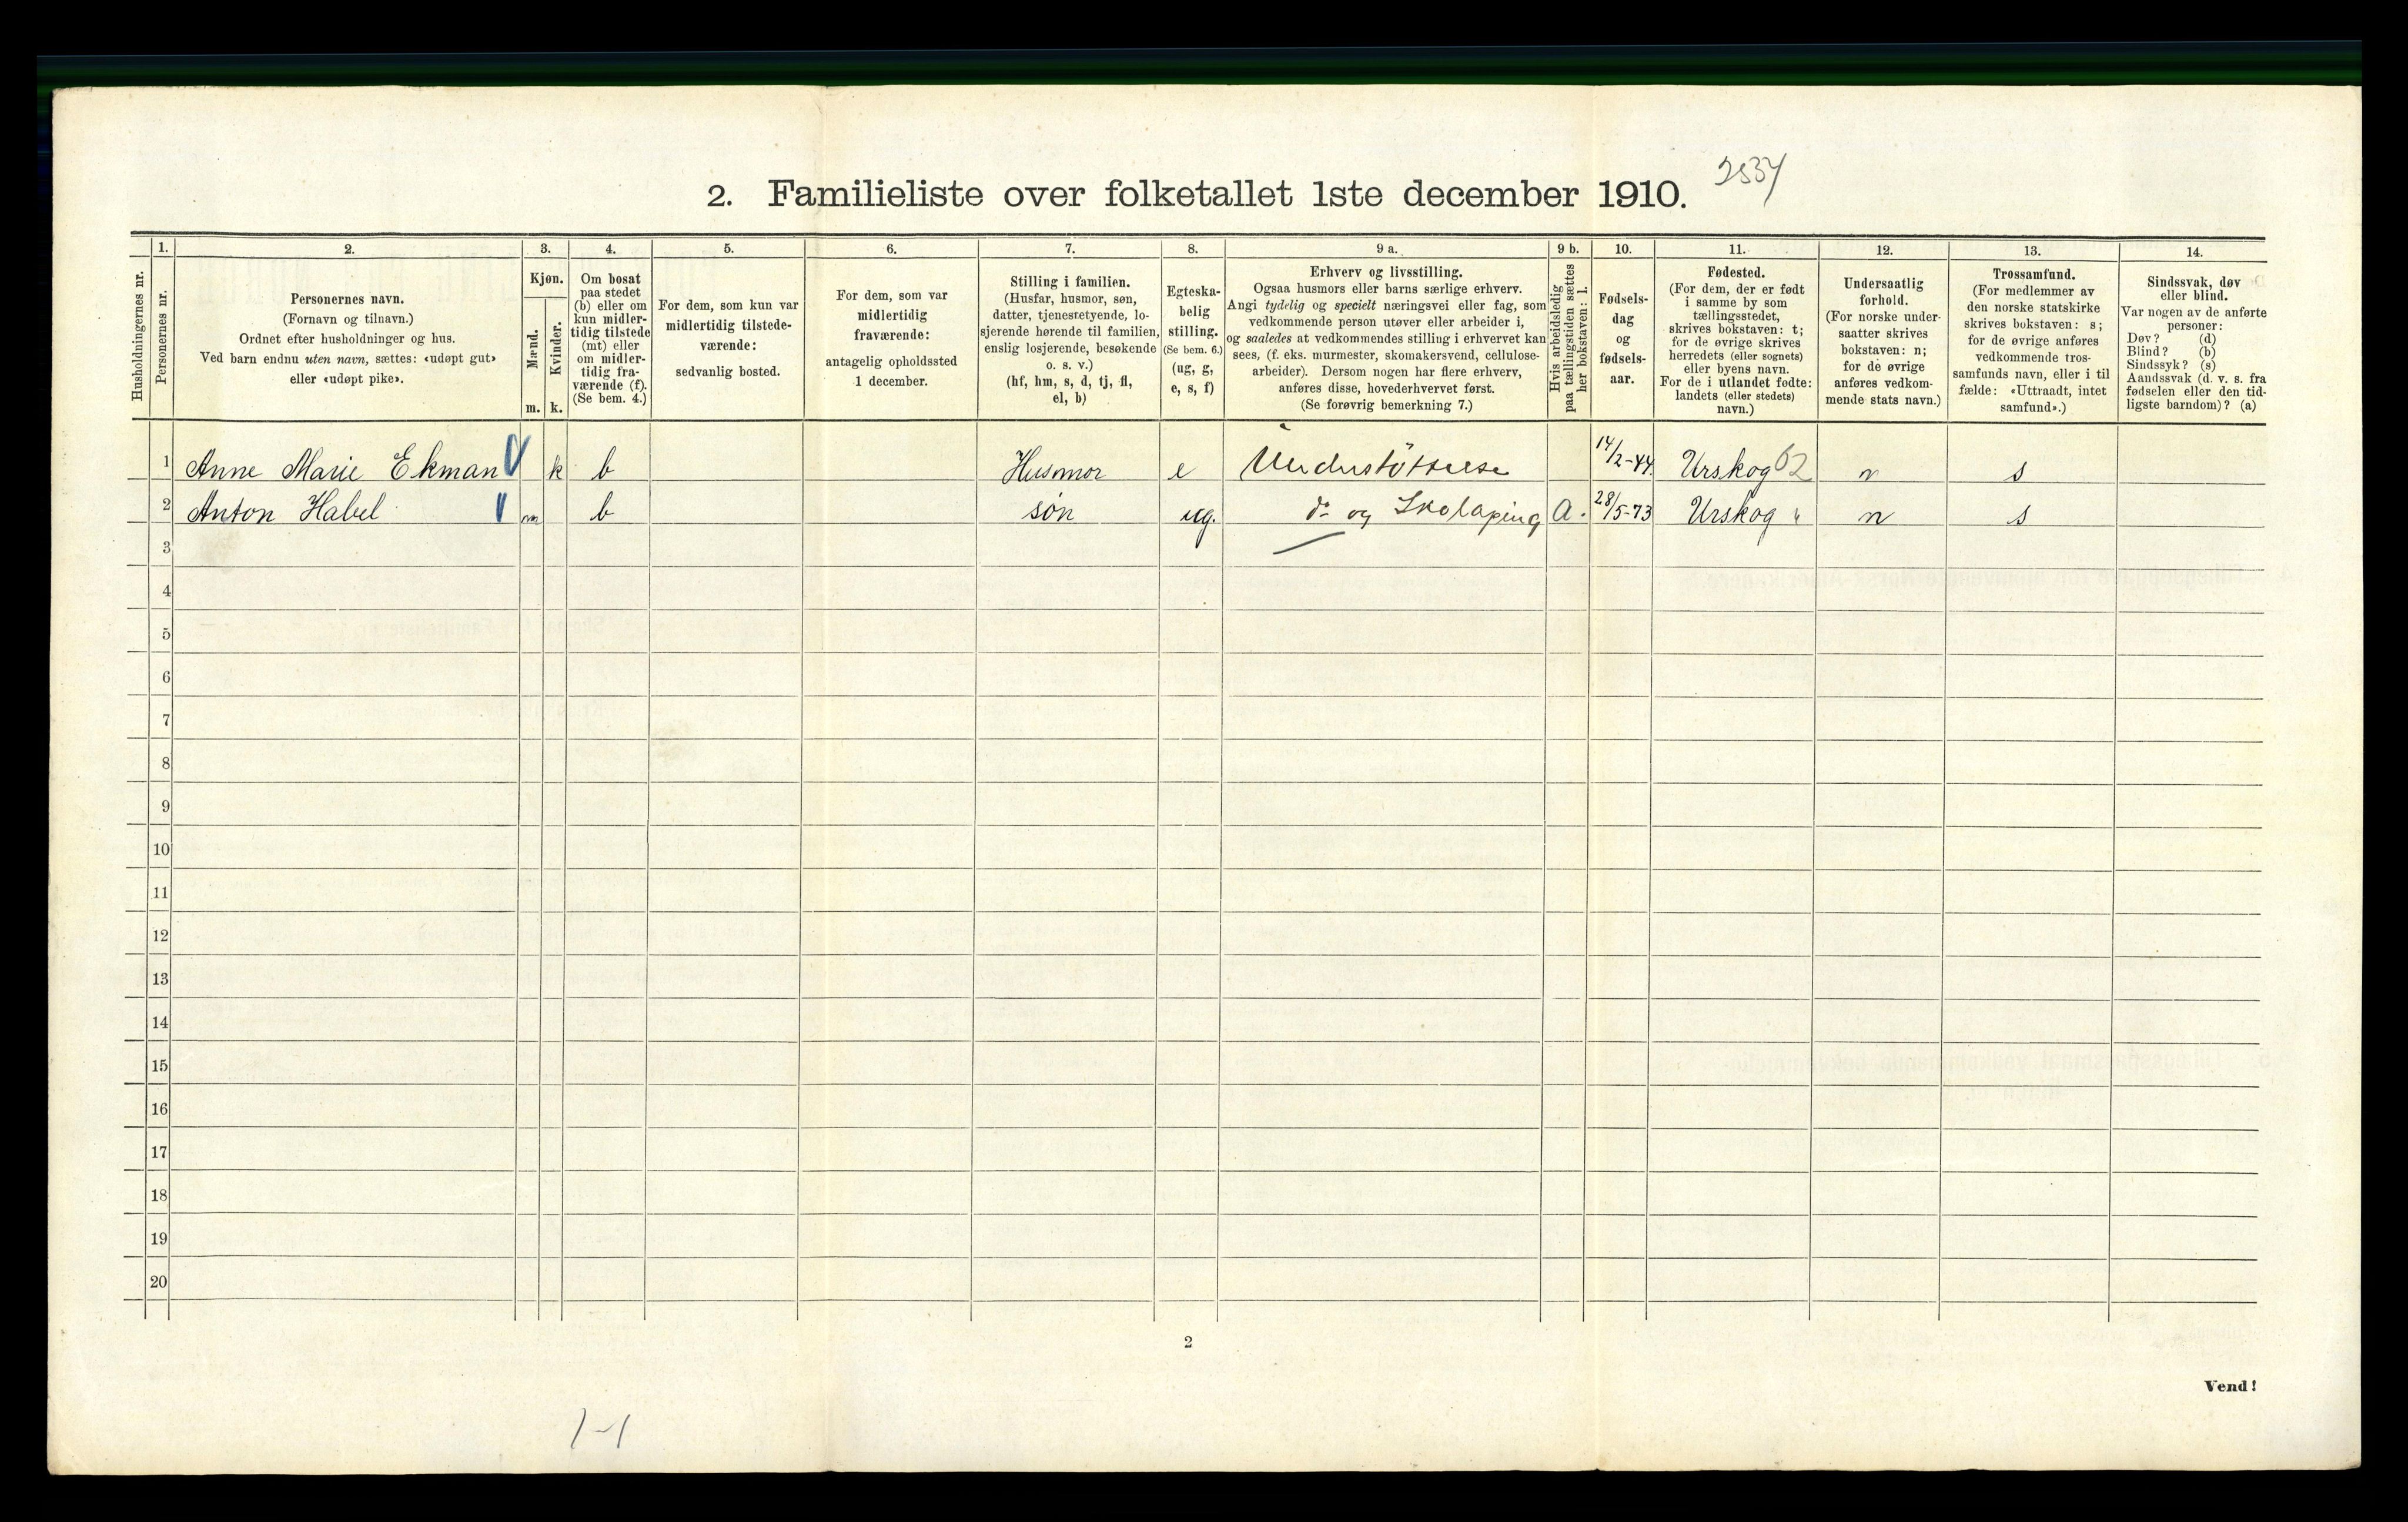 2537
2. Familieliste over folketallet 1ste december 1910.
Husholdningernes nr.
1.
Personernes nr.
2.
Personernes navn.
(Fornavn og tilnavn.)
Ordnet efter husholdninger og hus.
Ved barn endnu uten navn, sættes: «udøpt gut»
eller «udøpt pike».
3.
Kjøn.
Mænd.
m.
Kvinder.
k.
4.
Om bosat
paa stedet
(b) eller om
kun midler-
tidig tilstede
(mt) eller
om midler-
tidig fra-
værende (f).
(Se bem. 4.)
5.
For dem, som kun var
midlertidig tilstede-
værende:
sedvanlig bosted.
6.
For dem, som var
midlertidig
fraværende:
antagelig opholdssted
1 december.
7.
Stilling i familien.
(Husfar, husmor, søn,
datter, tjenestetyende, lo-
sjerende hørende til familien,
enslig losjerende, besøkende
o. s. v.)
(hf, hm, s, d, tj, fl,
el, b)
8.
Egteska-
belig
stilling.
(Se bem. 6.)
(ug, g,
e, s, f)
9 a.
Erhverv og livsstilling.
Ogsaa husmors eller barns særlige erhverv.
Angi tydelig og specielt næringsvei eller fag, som
vedkommende person utøver eller arbeider i,
og saaledes at vedkommendes stilling i erhvervet kan
sees, (f. eks. murmester, skomakersvend, cellulose-
arbeider). Dersom nogen har flere erhverv,
anføres disse, hovederhvervet først.
(Se forøvrig bemerkning 7.)
9 b.
Hvis arbeidsledig
paa tællingstiden sættes
her bokstaven: l.
10.
Fødsels-
dag
og
fødsels-
aar.
11.
Fødested.
(For dem, der er født
i samme by som
tællingsstedet,
skrives bokstaven: t;
for de øvrige skrives
herredets (eller sognets)
eller byens navn.
For de i utlandet fødte:
landets (eller stedets)
navn.)
12.
Undersaatlig
forhold.
(For norske under-
saatter skrives
bokstaven: n;
for de øvrige
anføres vedkom-
mende stats navn.)
13.
Trossamfund.
(For medlemmer av
den norske statskirke
skrives bokstaven: s;
for de øvrige anføres
vedkommende tros-
samfunds navn, eller i til
fælde: «Uttraadt, intet
samfund».)
14.
Sindssvak, døv
eller blind.
Var nogen av de anførte
personer:
Døv? (d)
Blind? (b)
Sindssyk? (s)
Aandssvak (d. v. s. fra
fødselen eller den tid-
ligste barndom)? (a)
1 Anne Marie Ekman k b Husmor e Understöttelse 14/2-44. Urskog 62 n s
2 Anton Habel m b søn ug. do og A. 28/5-73 Urskog " n s
3
4
5
6
7
8
9
10
11
12
13
14
15
16
17
18
19
20
2
Vend!
1-1